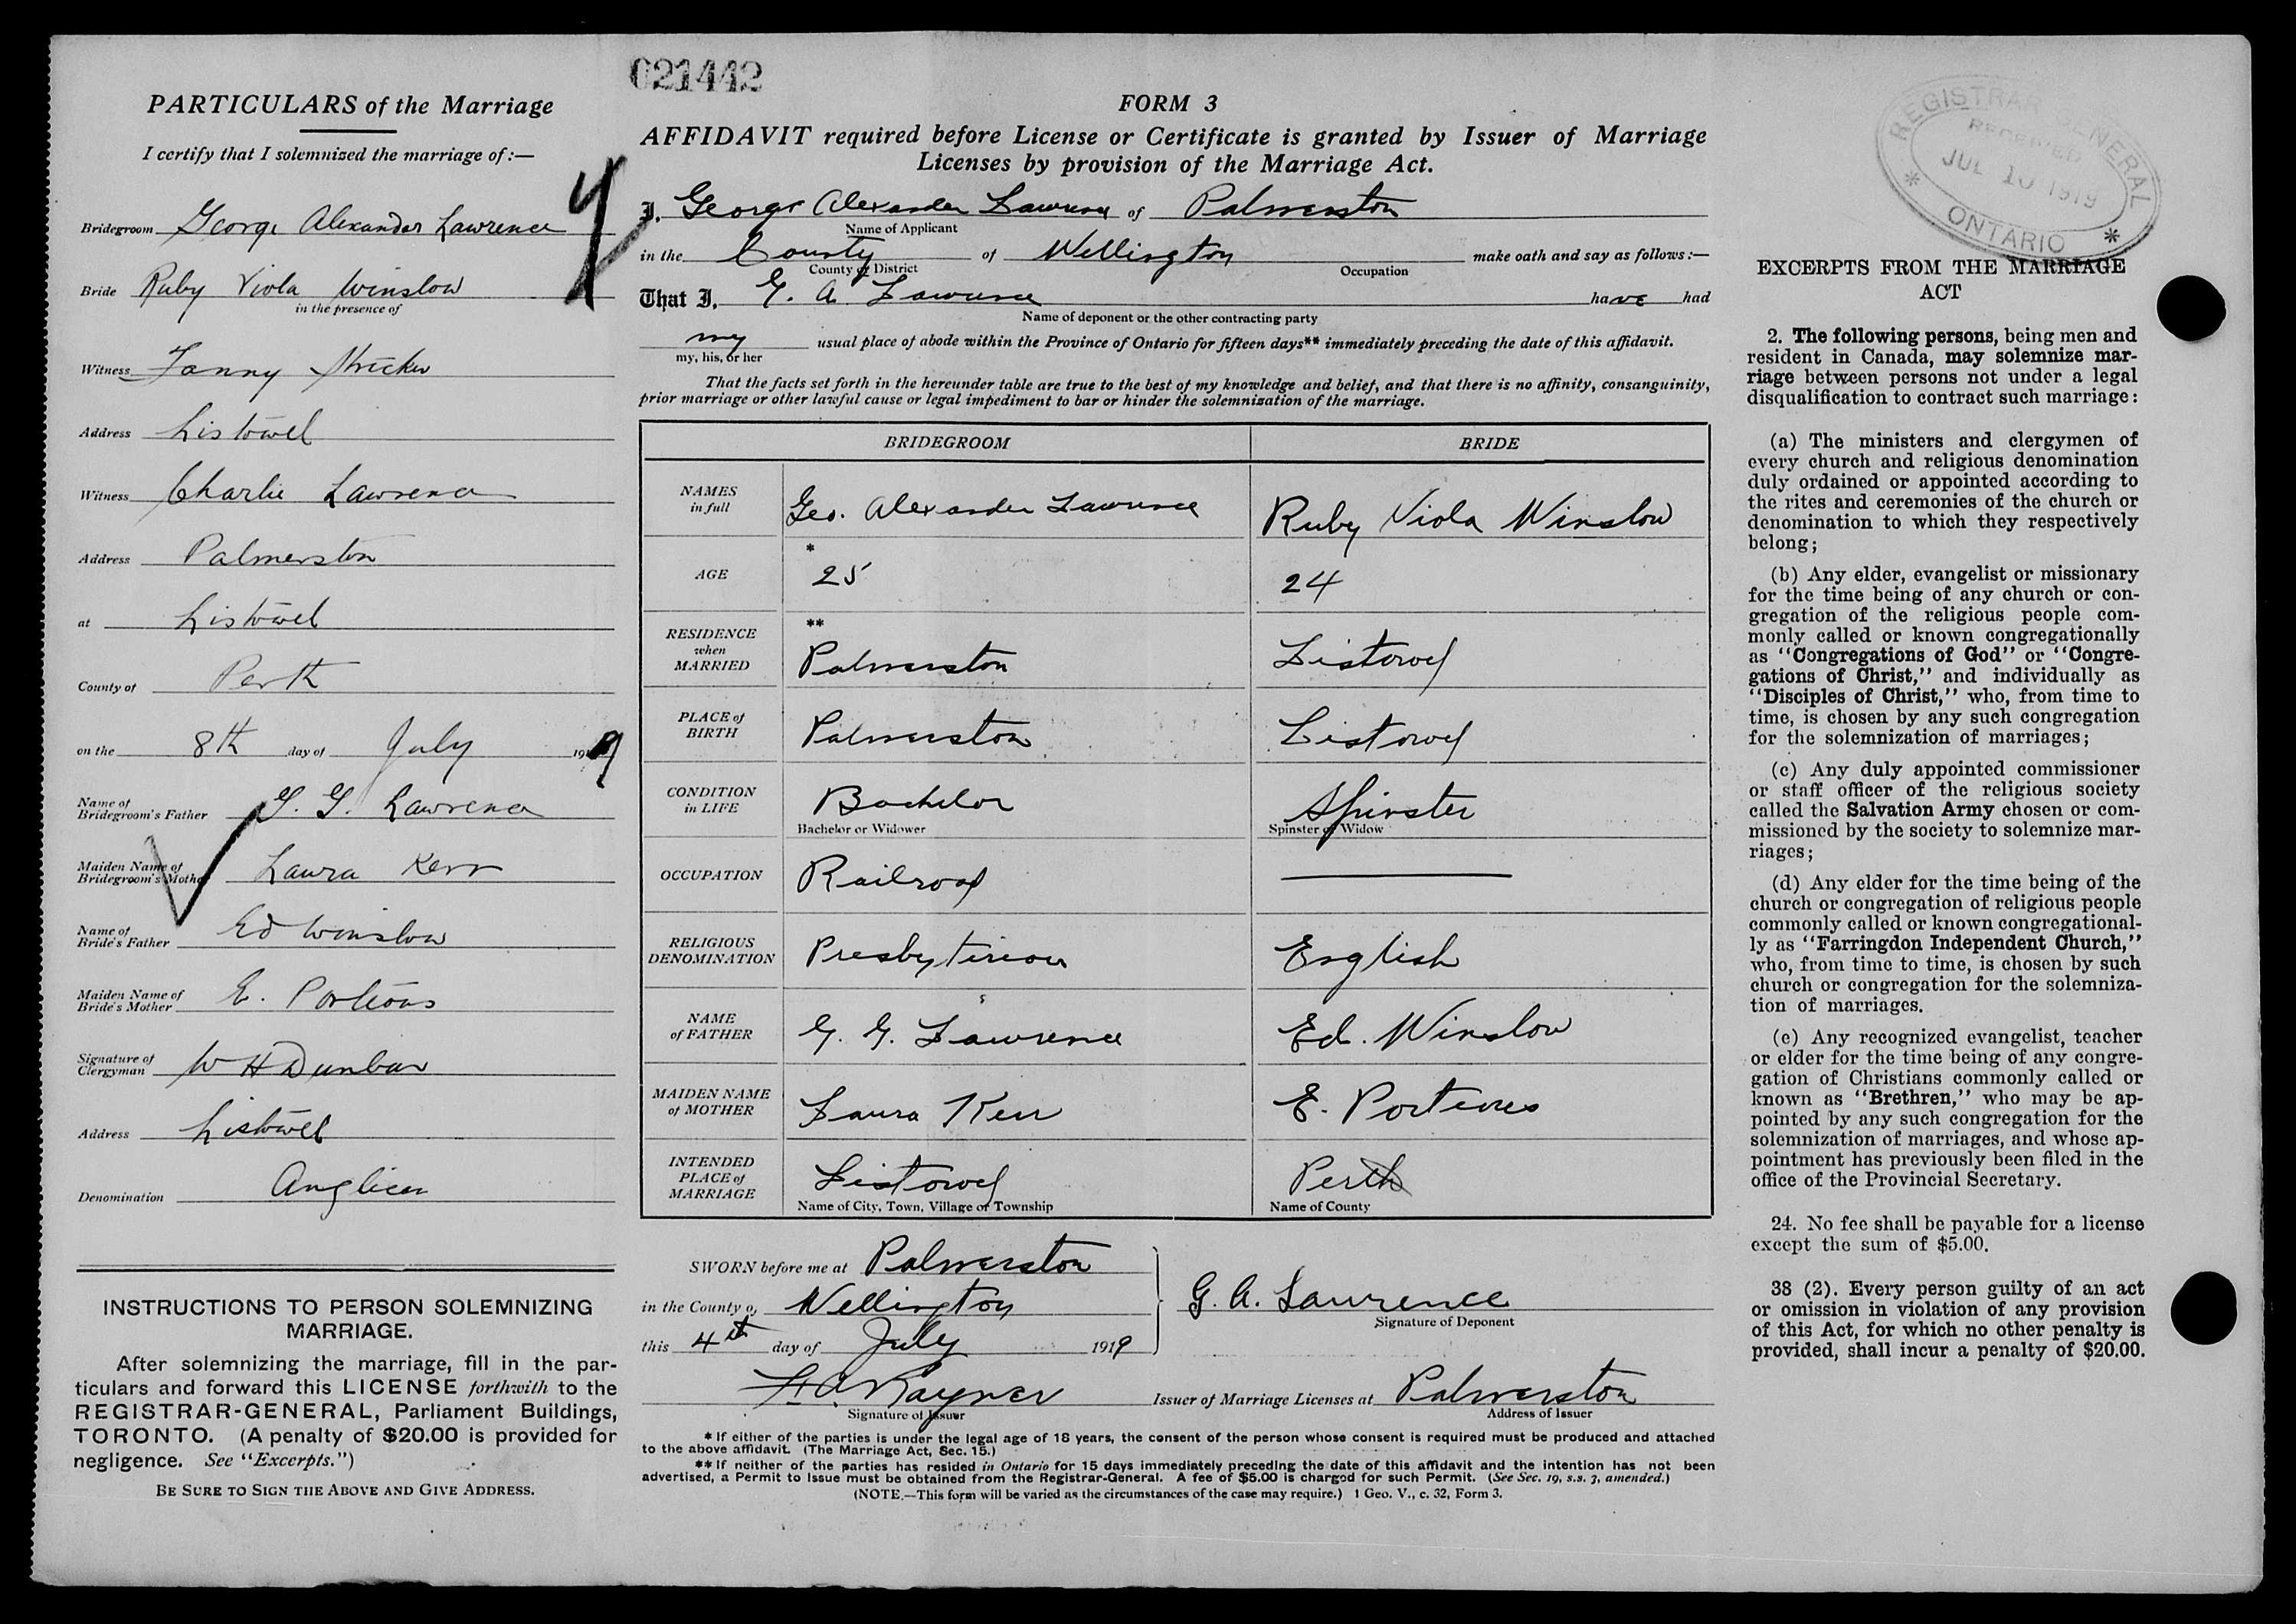 021442
PARTICULARS of the Marriage
I certify that I solemnized the marriage of:—
Bridegroom George Alexander Lawrence
Bride Ruby Viola Winslow
in the presence of
Witness Fanny
Address Listowel
Witness Charlie Lawrence
Address Palmerston
at Listowel
County of Perth
on the 8th day of July 1919
Name of
Bridegroom's Father G. G. Lawrence
Maiden Name of
Bridegroom's Mother Laura Kerr
Name of
Bride's Father Ed Winslow
Maiden Name of
Bride's Mother E. Porteous
Signature of
Clergyman W H Dunbar
Address Listowel
Denomination Anglican
INSTRUCTIONS TO PERSON SOLEMNIZING
MARRIAGE.
After solemnizing the marriage, fill in the par-
ticulars and forward this LICENSE forthwith to the
REGISTRAR-GENERAL, Parliament Buildings,
TORONTO. (A penalty of $20.00 is provided for
negligence. See "Excerpts.")
BE SURE TO SIGN THE ABOVE AND GIVE ADDRESS.
FORM 3
AFFIDAVIT required before License or Certificate is granted by Issuer of Marriage
Licenses by provision of the Marriage Act.
I, George Alexander Lawrence of Palmerston
Name of Applicant
in the County of Wellington make oath and say as follows:—
County or District Occupation
That I, G. A. Lawrence have had
Name of deponent or the other contracting party
my usual place of abode within the Province of Ontario for fifteen days** immediately preceding the date of this affidavit.
my, his, or her
That the facts set forth in the hereunder table are true to the best of my knowledge and belief, and that there is no affinity, consanguinity,
prior marriage or other lawful cause or legal impediment to bar or hinder the solemnization of the marriage.
BRIDEGROOM BRIDE
NAMES
in full Geo. Alexander Lawrence Ruby Viola Winslow
*
AGE 25 24
**
RESIDENCE
when
MARRIED Palmerston Listowel
PLACE of
BIRTH Palmerston Listowel
CONDITION
in LIFE Bachelor Spinster
Bachelor or Widower Spinster or Widow
OCCUPATION Railroad
RELIGIOUS
DENOMINATION Presbyterian English
NAME
of FATHER G. G. Lawrence Ed. Winslow
MAIDEN NAME
of MOTHER Laura Kerr E. Porteous
INTENDED
PLACE of
MARRIAGE Listowel Perth
Name of City, Town, Village or Township Name of County
SWORN before me at Palmerston
in the County of Wellington G. A. Lawrence
Signature of Deponent
this 4th day of July 1919
Rayner Issuer of Marriage Licenses at Palmerston
Signature of Issuer Address of Issuer
* If either of the parties is under the legal age of 18 years, the consent of the person whose consent is required must be produced and attached
to the above affidavit. (The Marriage Act, Sec. 15.)
** If neither of the parties has resided in Ontario for 15 days immediately preceding the date of this affidavit and the intention has not been
advertised, a Permit to Issue must be obtained from the Registrar-General. A fee of $5.00 is charged for such Permit. (See Sec. 19, s.s. 3, amended.)
(NOTE.—This form will be varied as the circumstances of the case may require.) 1 Geo. V., c. 32, Form 3.
REGISTRAR GENERAL
RECEIVED
JUL 10 1919
* ONTARIO *
EXCERPTS FROM THE MARRIAGE
ACT
2. The following persons, being men and
resident in Canada, may solemnize mar-
riage between persons not under a legal
disqualification to contract such marriage:
(a) The ministers and clergymen of
every church and religious denomination
duly ordained or appointed according to
the rites and ceremonies of the church or
denomination to which they respectively
belong;
(b) Any elder, evangelist or missionary
for the time being of any church or con-
gregation of the religious people com-
monly called or known congregationally
as "Congregations of God" or "Congre-
gations of Christ," and individually as
"Disciples of Christ," who, from time to
time, is chosen by any such congregation
for the solemnization of marriages;
(c) Any duly appointed commissioner
or staff officer of the religious society
called the Salvation Army chosen or com-
missioned by the society to solemnize mar-
riages;
(d) Any elder for the time being of the
church or congregation of religious people
commonly called or known congregational-
ly as "Farringdon Independent Church,"
who, from time to time, is chosen by such
church or congregation for the solemniza-
tion of marriages.
(e) Any recognized evangelist, teacher
or elder for the time being of any congre-
gation of Christians commonly called or
known as "Brethren," who may be ap-
pointed by any such congregation for the
solemnization of marriages, and whose ap-
pointment has previously been filed in the
office of the Provincial Secretary.
24. No fee shall be payable for a license
except the sum of $5.00.
38 (2). Every person guilty of an act
or omission in violation of any provision
of this Act, for which no other penalty is
provided, shall incur a penalty of $20.00.